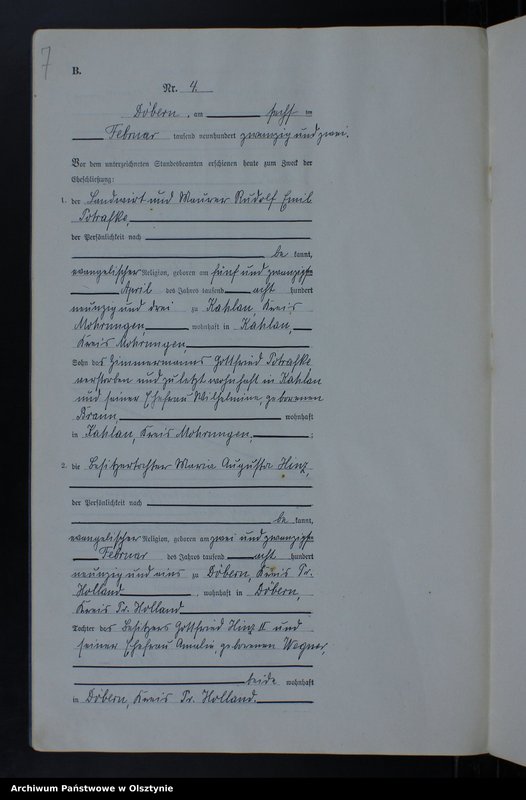 7
B.
Nr. 4.
Döbern, am sechs ten
Februar tausend neunhundert zwanzig und zwei.
Vor dem unterzeichneten Standesbeamten erschienen heute zum Zweck der
Eheschließung:
1. der Landwirt und Maurer Rudolf Emil
Potrafke,
der Persönlichkeit nach
be kannt,
evangelischer Religion, geboren am fünf und zwanzigsten
April des Jahres tausend acht hundert
neunzig und drei zu Kahlau, Kreis
Mohrungen, wohnhaft in Kahlau,
Kreis Mohrungen,
Sohn des Zimmermanns Gottfried Potrafke
verstorben und zuletzt wohnhaft in Kahlau
und seiner Ehefrau Wilhelmine, geborenen
Braun wohnhaft
in Kahlau, Kreis Mohrungen, ;
2. die Besitzertochter Maria Augusta Hinz,
der Persönlichkeit nach
be kannt,
evangelischer Religion, geboren am zwei und zwanzigsten
Februar des Jahres tausend acht hundert
neunzig und eins zu Döbern, Kreis Pr.
Holland, wohnhaft in Döbern,
Kreis Pr. Holland
Tochter des Besitzers Gottfried Hinz II und
seiner Ehefrau Amalie, geborenen Wegner,
beide wohnhaft
in Döbern, Kreis Pr. Holland.
Archiwum Państwowe w Olsztynie